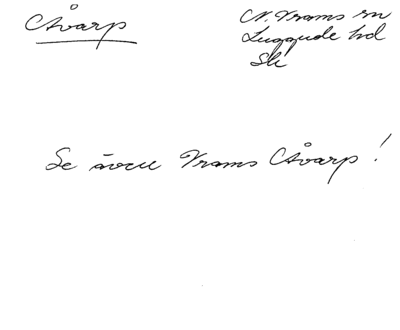 Åvarp
N. Vrams sn
Luggude hd
Sk
Se även Vrams Åvarp!